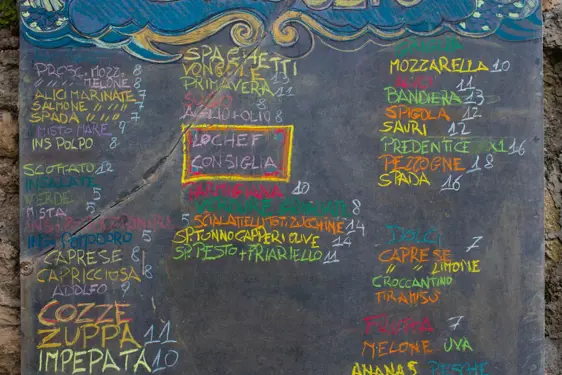 PROSC. MOZZ. 8
" " MELONE 8
ALICI MARINATE 7
SALMONE " " " 7
SPADA " " " 7
MISTO MARE 9
INS POLPO 8
SCOTTATO 12
INSALATE
VERDE 5
MISTA 5
INS. POMODORO 5
CAPRESE 8
CAPRICCIOSA 8
ADOLFO 9
COZZE
ZUPPA 11
IMPEPATA 10
SPAGHETTI
VONGOLE 13
PRIMAVERA 11
AGLIO+OLIO 8
LO CHEF
CONSIGLIA
10
8
SCIALATIELLI TOT. ZUCCHINE 14
SP. TONNO CAPPERI OLIVE 14
SP. PESTO + FRIARIELLO 11
MOZZARELLA 10
11
BANDIERA 13
SPIGOLA 12
SAURI 12
PREDENTICE X1 16
PEZZOGNE 18
SPADA 16
DOLCI 7
CAPRESE
" " LIMONE
CROCCANTINO
TIRAMISU
FRUTTA 7
MELONE UVA
ANANAS PESCHE